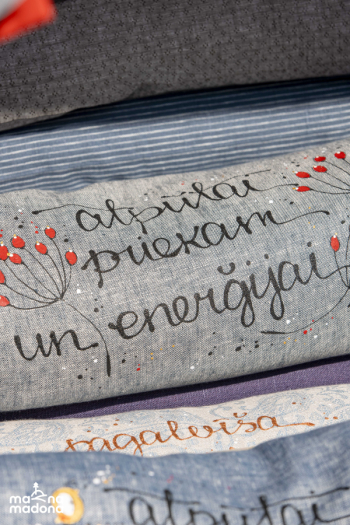 atpūtai
priekam
un enerģijai
pagalvīša
atpūtai
ma na
madona